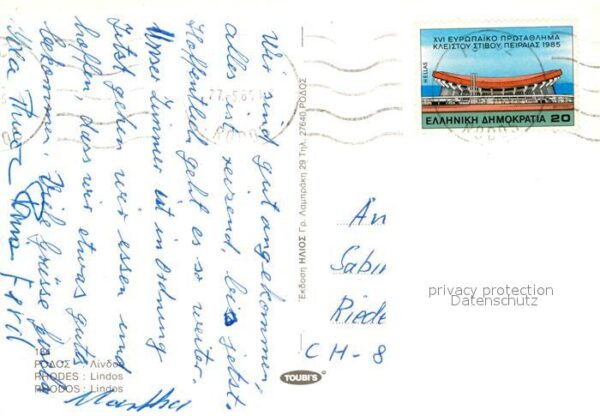 Wir sind gut angekommen,
alles ist reizend, bis jetzt.
Hoffentlich geht es so weiter.
Unser Zimmer ist in Ordnung
Jetzt gehen wir essen und
hoffen, dass wir etwas gutes
bekommen. Viele Grüsse
Martha
An
Sabin
Riede
CH-8
privacy protection
Datenschutz
XVI ΕΥΡΩΠΑΪΚΟ ΠΡΩΤΑΘΛΗΜΑ
ΚΛΕΙΣΤΟΥ ΣΤΙΒΟΥ, ΠΕΙΡΑΙΑΣ 1985
HELLAS
ΕΛΛΗΝΙΚΗ ΔΗΜΟΚΡΑΤΙΑ 20
Έκδοση ΗΛΙΟΣ Γρ. Λαμπράκη 29 Τηλ. 27640 ΡΟΔΟΣ
TOUBI'S
ΡΟΔΟΣ : Λίνδος
RHODES : Lindos
RHODOS : Lindos